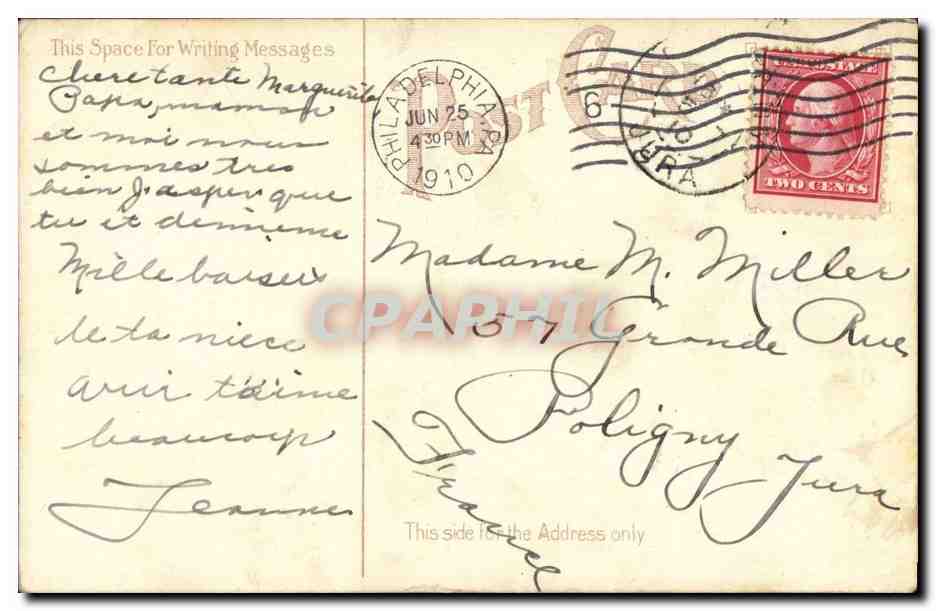 This Space For Writing Messages
POST CARD
Chere tante Marguerite
Papa, maman
et moi nous
sommes tres
bien J'asper que
tu et demieme
Mille baiseux
de ta niece
qui t'aime
beaucoup
Jeanne
PHILADELPHIA, PA.
JUN 25
4 30 PM
1910
6
JURA
U.S. POSTAGE
TWO CENTS
Madame M. Miller
57 Grande Rue
Poligny Jura
France
This side for the Address only
CPAPHIL